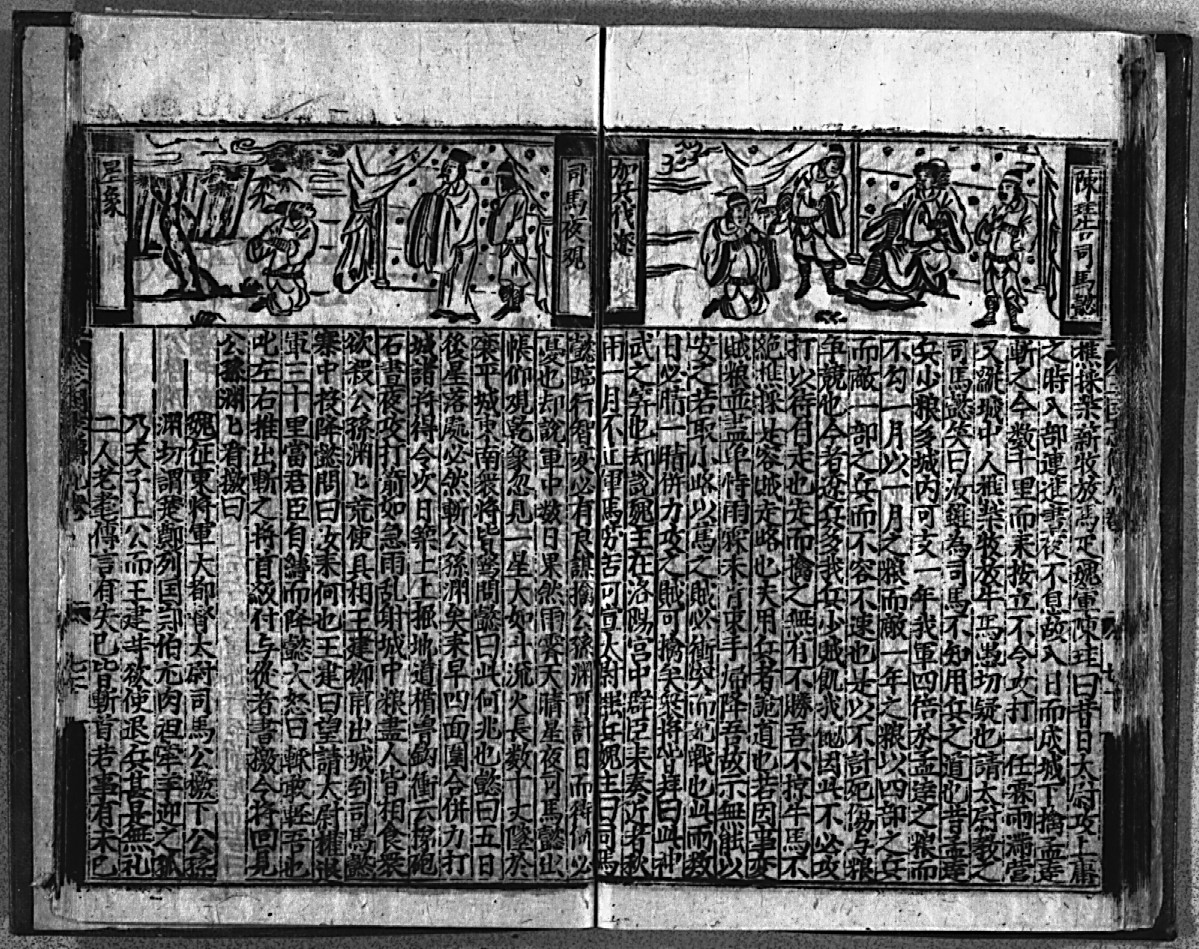 陳珪告司馬懿
加兵伐遼
樵採柴薪牧放馬疋魏軍陳珪曰昔日太尉攻上庸
之時八部連進晝夜不息故八日而成城下擒孟達
斬之今數千里而來按立不令攻打一任霖雨滯營
又縱城中人樵柴牧放牛馬愚切疑也請太尉教之
司馬懿笑曰汝雖為司馬不知用兵之道也昔孟達
兵小粮多城內可支一年我軍四倍於孟達之粮而
不勾一月以一月之粮而敵一年之粮以四部之兵
而敵一部之兵而不容不速也是以不計死傷与粮
争競也今者遼兵多我兵少賊飢我飽因此不必攻
打以待自走也走而擒之無有不勝吾不掠牛馬不
絕樵採是容賊走路也夫用兵者詭道也若因事变
賊粮益盡卒恃雨霖未肯束手歸降吾故示無能以
安之若取小路以馬之賊必衝突而死戰也此雨数
日必晴一晴併力攻之賊可擒矣衆將皆拜曰此神
武之筭也却説魏主在洛陽宮中群臣来奏近者秋
雨一月不止軍馬劳苦可宣太尉罷兵魏主曰司馬
司馬夜观
星象
懿臨行智变必有良謀擒公孫渊可計日而得何必
憂也却説軍中数日果然雨霽天晴星夜司馬懿出
帳仰观乾象忽見一星大如斗流火長数十丈墜於
襄平城東南衆將皆驚問懿曰此何兆也懿曰五日
後星落處必然斬公孫渊矣来早四面圍合併力打
城諸將得令次日築土上掘地道楯魯鈎衝云梯砲
石晝夜攻打箭如急雨乱射城中粮盡人皆相食衆
欲殺公孫渊渊荒使其相王建柳甫出城到司馬懿
寨中投降懿問曰汝来何也王建曰望請太尉權退
軍三十里當君臣自縛而降懿大怒曰輒敢輕吾也
叱左右推出斬之將首級付与從者書檄令將回見
公孫渊渊看檄曰
魏征東將軍大都督太尉司馬公檄下公孫
渊切謂楚鄭列国鄭伯尤肉袒牽羊迎之孤
乃天子上公而王建等欲使退兵甚是無礼
二人老耄傳言有失已皆斬首若事有未已